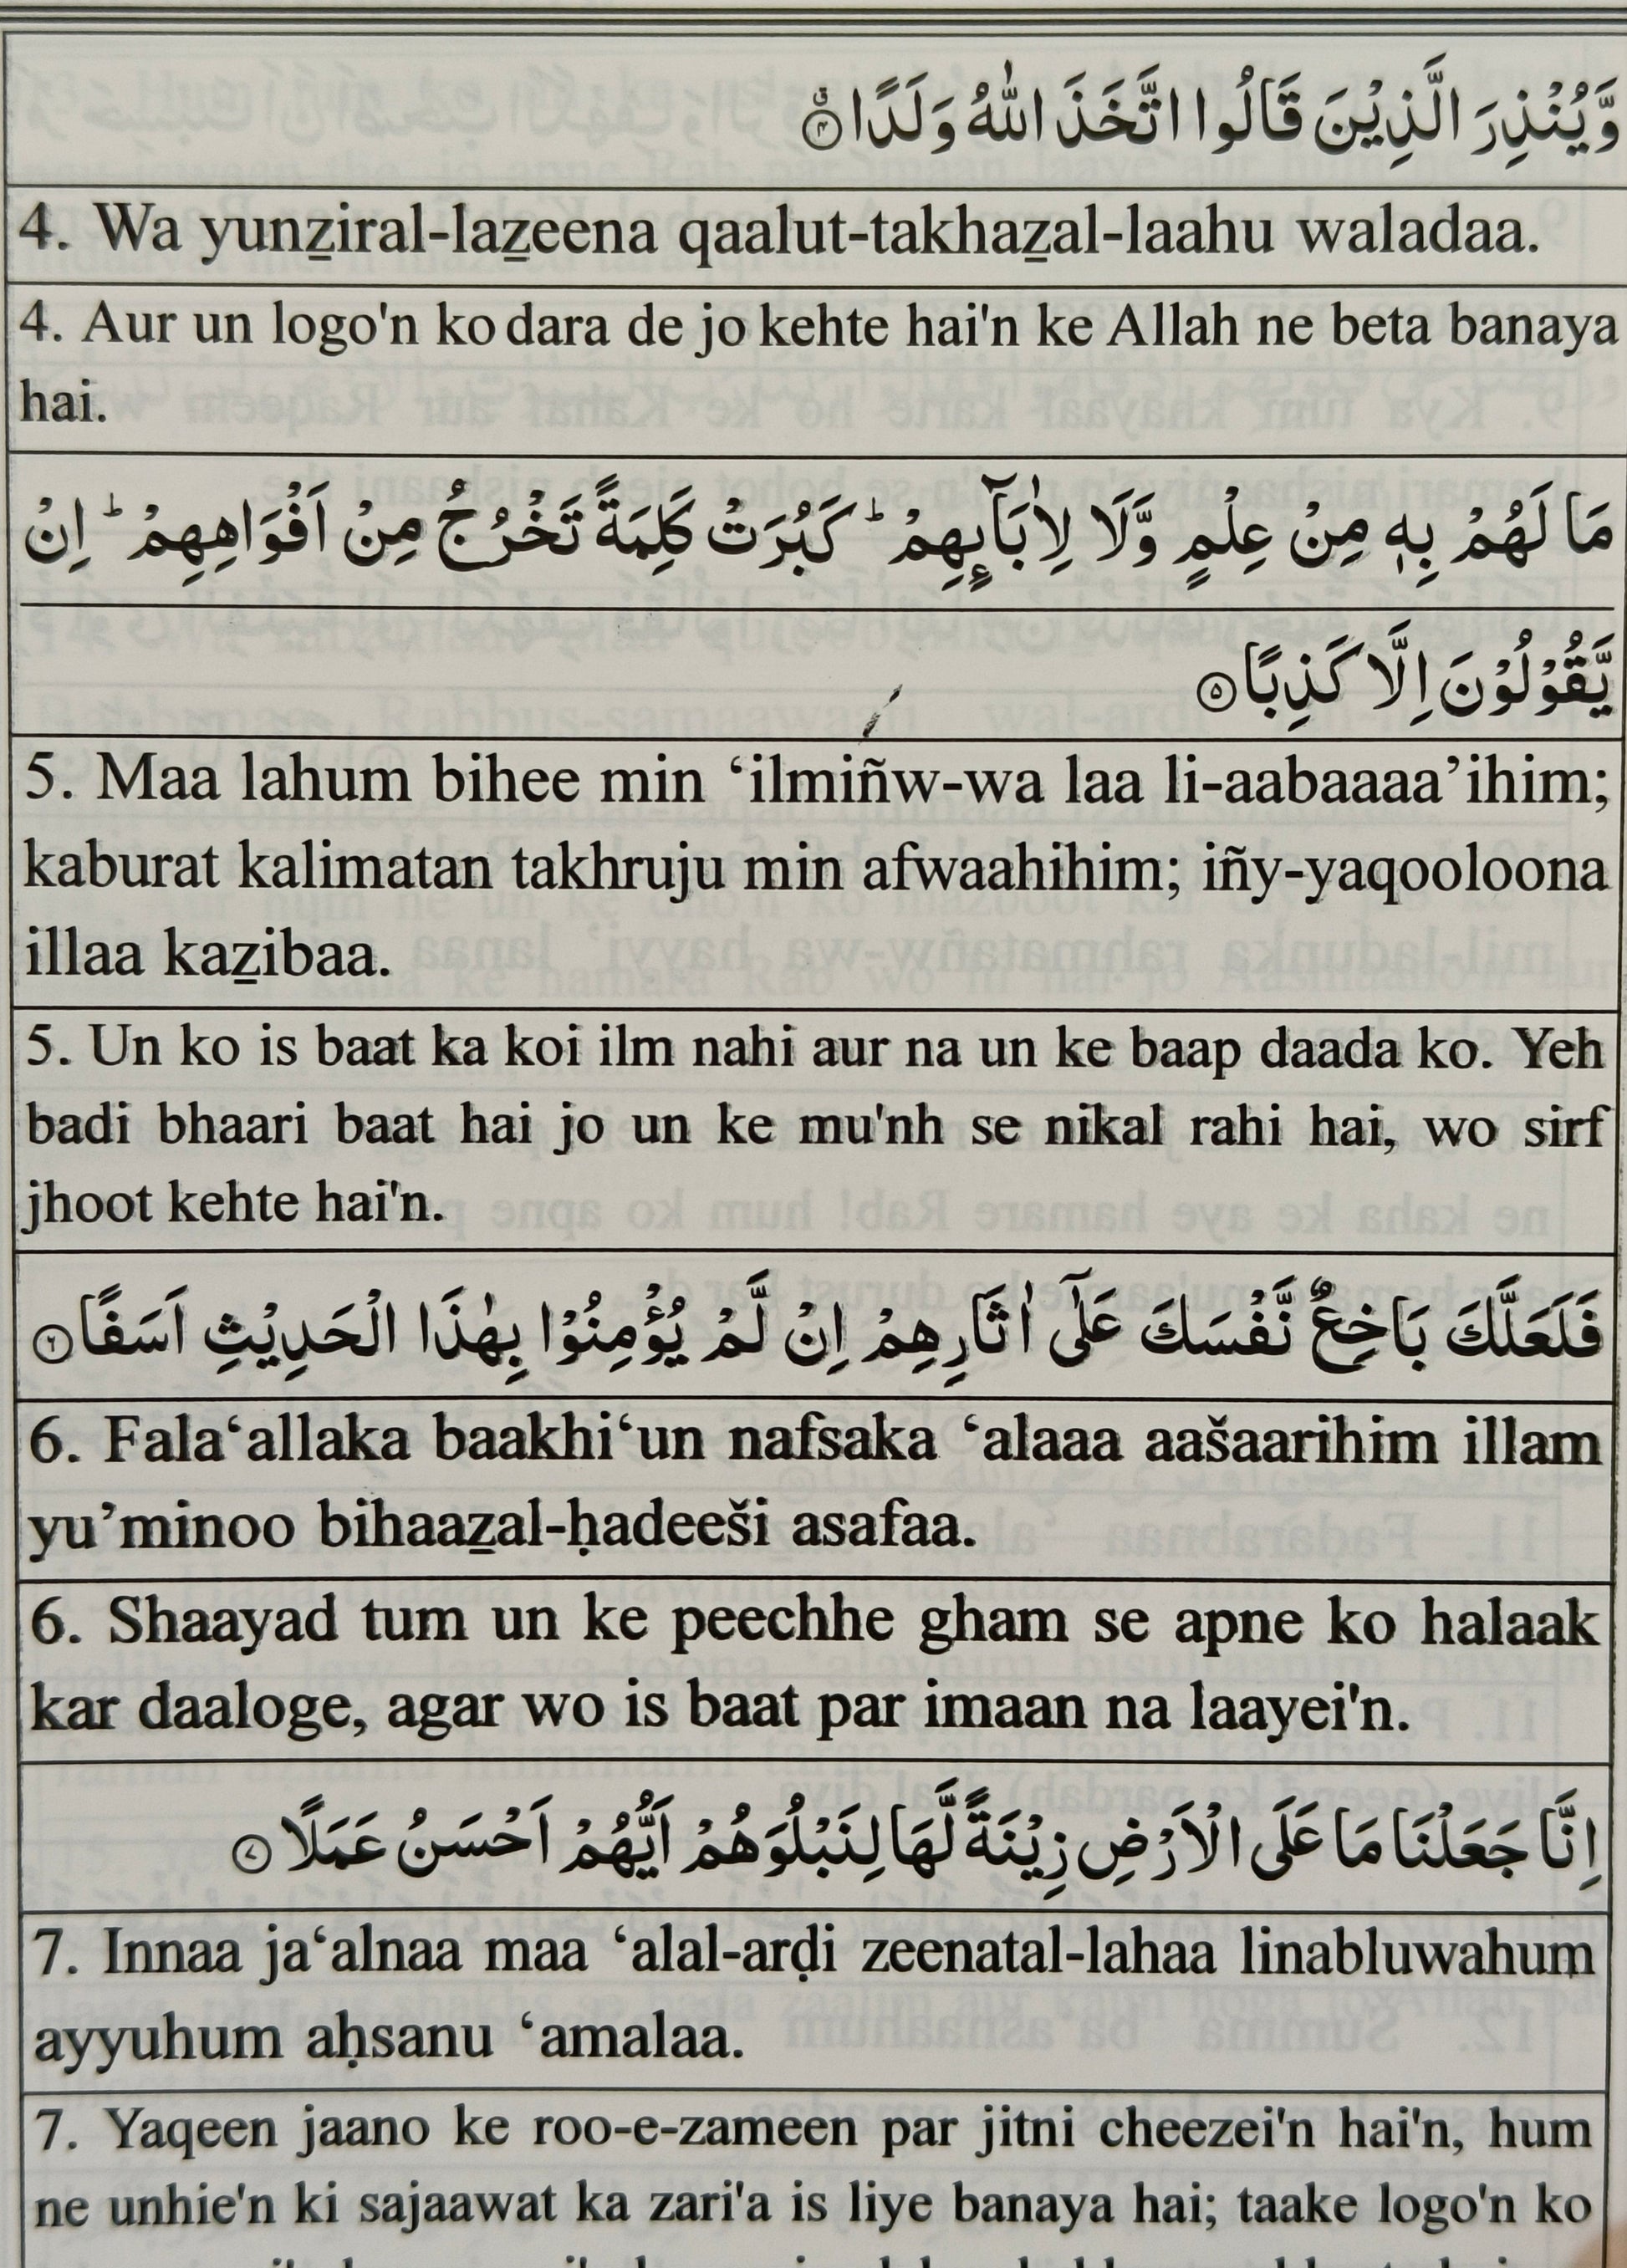 وَّيُنْذِرَ الَّذِيْنَ قَالُوا اتَّخَذَ اللّٰهُ وَلَدًا ۙ۝۴
4. Wa yunz̲iral-laz̲eena qaalut-takhaz̲al-laahu waladaa.
4. Aur un logo'n ko dara de jo kehte hai'n ke Allah ne beta banaya
hai.
مَا لَهُمْ بِهٖ مِنْ عِلْمٍ وَّلَا لِاٰبَآىِٕهِمْ ؕ كَبُرَتْ كَلِمَةً تَخْرُجُ مِنْ اَفْوَاهِهِمْ ؕ اِنْ
يَّقُوْلُوْنَ اِلَّا كَذِبًا ۝۵
5. Maa lahum bihee min ‘ilmiñw-wa laa li-aabaaaa’ihim;
kaburat kalimatan takhruju min afwaahihim; iñy-yaqooloona
illaa kaz̲ibaa.
5. Un ko is baat ka koi ilm nahi aur na un ke baap daada ko. Yeh
badi bhaari baat hai jo un ke mu'nh se nikal rahi hai, wo sirf
jhoot kehte hai'n.
فَلَعَلَّكَ بَاخِعٌ نَّفْسَكَ عَلٰۤى اٰثَارِهِمْ اِنْ لَّمْ يُؤْمِنُوْا بِهٰذَا الْحَدِيْثِ اَسَفًا ۝۶
6. Fala‘allaka baakhi‘un nafsaka ‘alaaa aašaarihim illam
yu’minoo bihaaz̲al-ḥadeeši asafaa.
6. Shaayad tum un ke peechhe gham se apne ko halaak
kar daaloge, agar wo is baat par imaan na laayei'n.
اِنَّا جَعَلْنَا مَا عَلَى الْاَرْضِ زِيْنَةً لَّهَا لِنَبْلُوَهُمْ اَيُّهُمْ اَحْسَنُ عَمَلًا ۝۷
7. Innaa ja‘alnaa maa ‘alal-arḍi zeenatal-lahaa linabluwahum
ayyuhum aḥsanu ‘amalaa.
7. Yaqeen jaano ke roo-e-zameen par jitni cheezei'n hai'n, hum
ne unhie'n ki sajaawat ka zari'a is liye banaya hai; taake logo'n ko